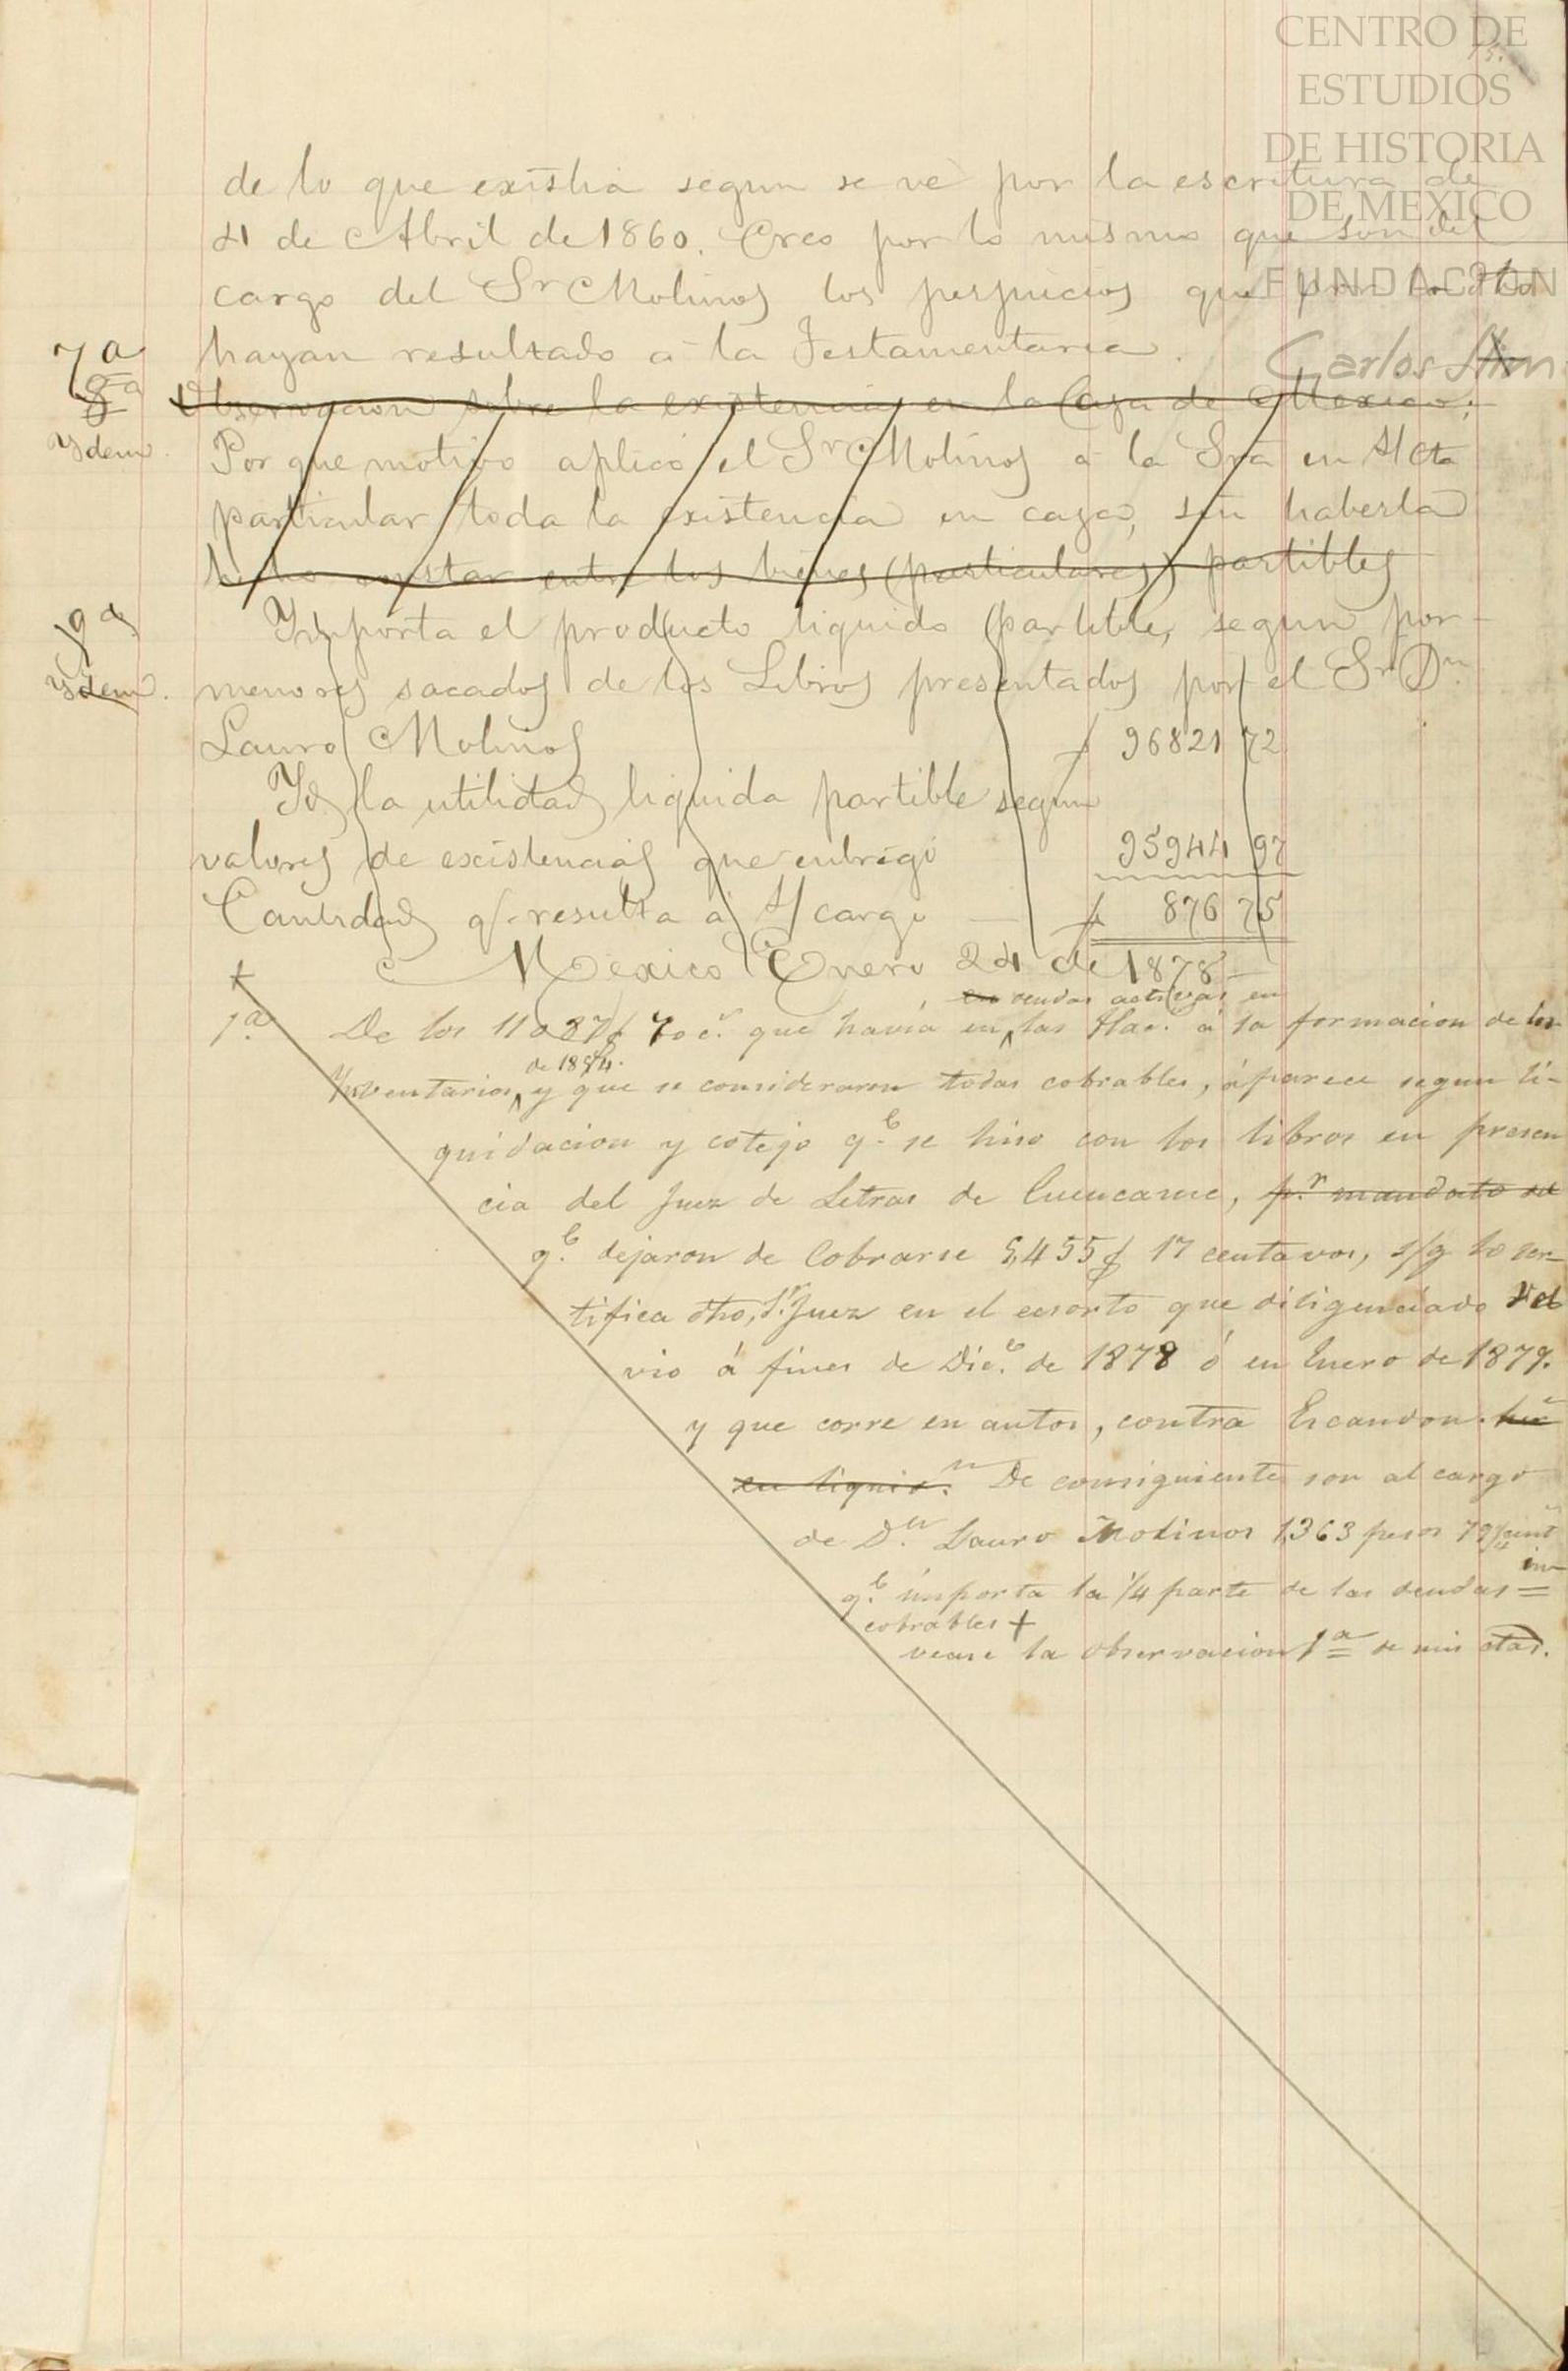 CENTRO DE
ESTUDIOS
DE HISTORIA
DE MEXICO
FUNDACION
Carlos Slim
de lo que existia segun se vé por la escritura de
4 de Abril de 1860. Creo por lo mismo que son del
cargo del Sr Molinos los perjuicios que por
hayan resultado á la Testamentaria.
7a
8a
Observacion sobre la existencia en la Caja de Mexico.
Ydem. Por que motivo aplicó el Sr Molinos á la Sra en S/ Cta
particular toda la existencia en caja, sin haberla
hecho constar entre los bienes (particulares) partibles
9a Ymporta el producto liquido partible, segun por-
Ydem. menores sacados de los Libros presentados por el Sr Dn
Lauro Molinos $ 96821 72
Yd la utilidad liquida partible segun
valores de existencias que entregó 95944 97
Cantidad q/ resulta á S/ cargo — $ 876 75
Mexico Enero 24 de 1878 —
en deudas activas en
1.a De los 11087$ 70 c. que havia en las Hac. á la formacion de los
de 1854.
Ynventarios, y que se consideraron todas cobrables, áparece segun li-
quidacion y cotejo q.e se hiso con los libros en presen
cia del Juez de Letras de Cuencame, p.r mandato
q.e dejaron de Cobrarse 5,455$ 17 centavos, s/g lo cer-
tifica dho, Sr. Juez en el ecsorto que diligenciado vol
vio á fines de Dic.e de 1878 ó en Enero de 1879.
y que corre en autos, contra Escandon.
en liquid.n De consiguiente son al cargo
de D.n Lauro Molinos 1,363 pesos 79
q.e importa la 1/4 parte de las deudas in=
cobrables +
vease la observacion 1a de mis ctas.